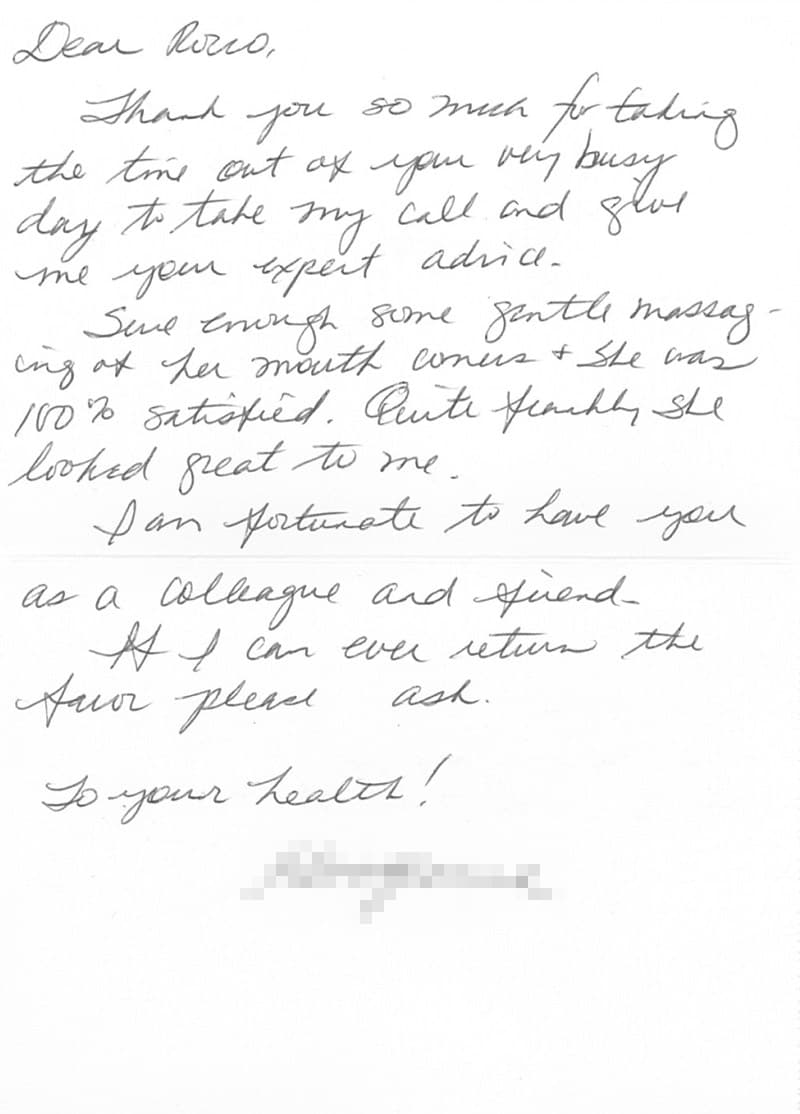 Dear Rocco,
Thank you so much for taking
the time out of your very busy
day to take my call and give
me your expert advice.
Sure enough some gentle massag-
ing of her mouth corners + she was
100% satisfied. Quite frankly she
looked great to me.
I am fortunate to have you
as a colleague and friend.
If I can ever return the
favor please ask.
To your health!